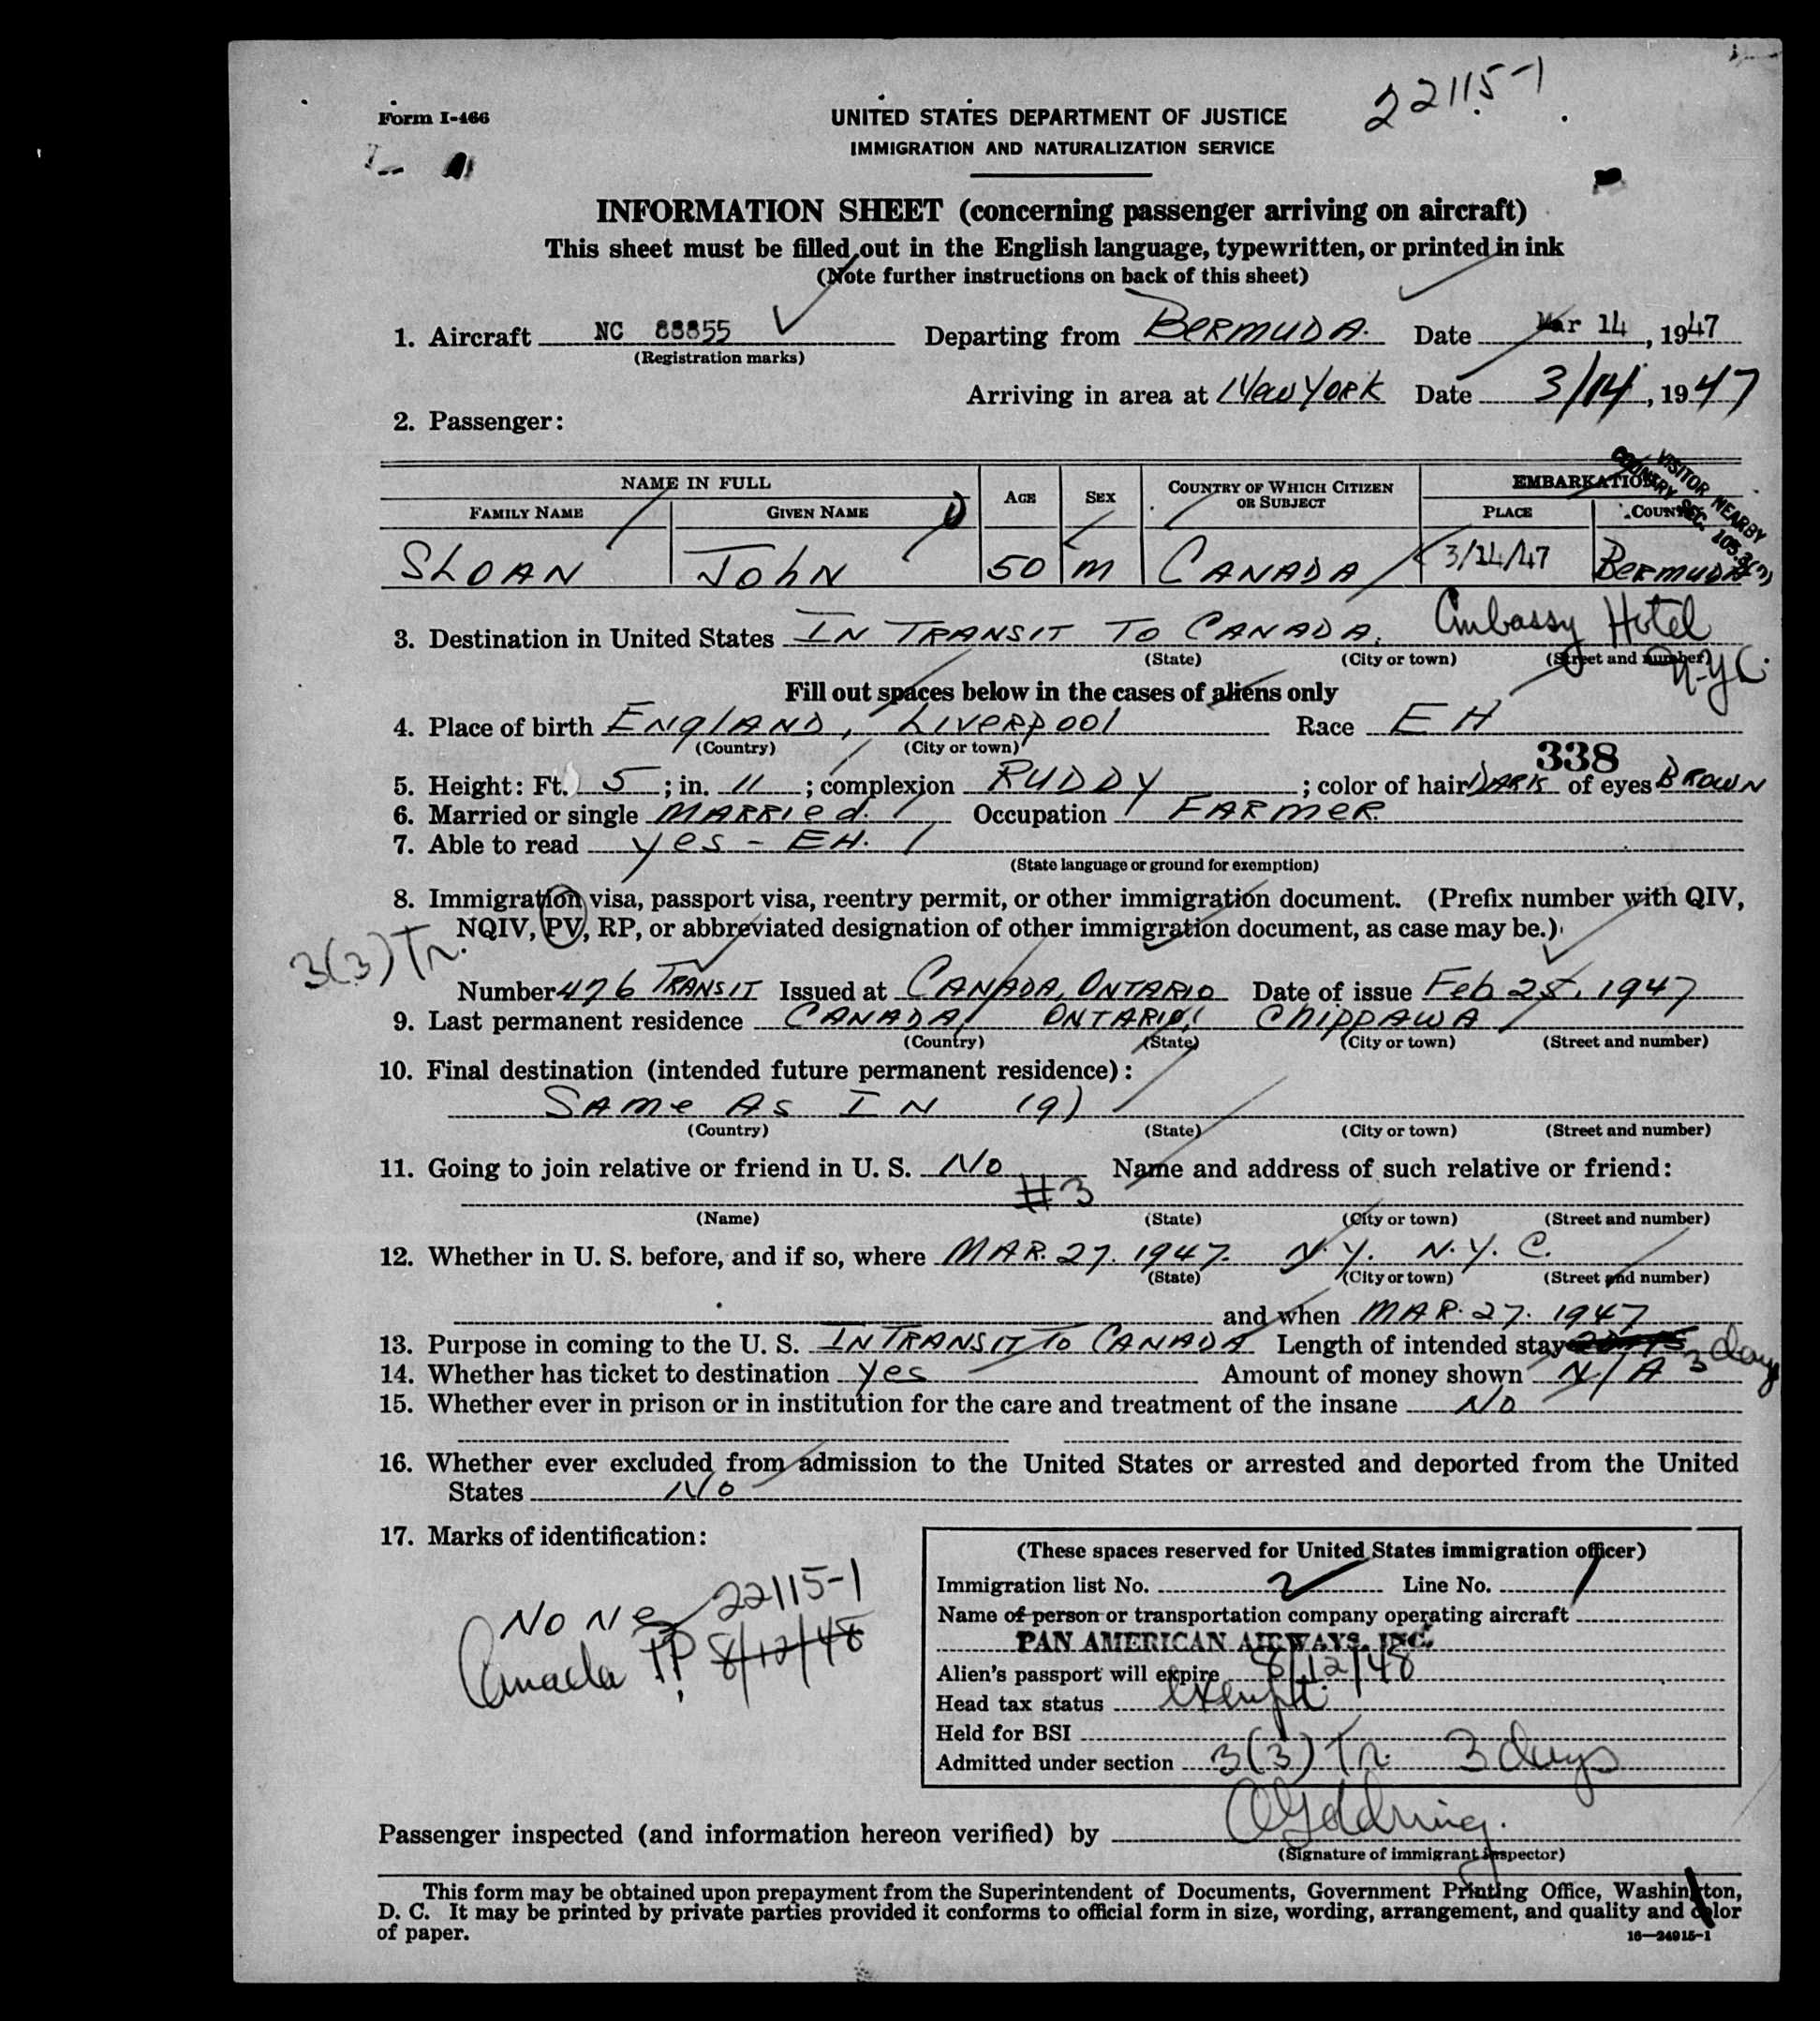 22115-1
Form I-466
UNITED STATES DEPARTMENT OF JUSTICE
IMMIGRATION AND NATURALIZATION SERVICE
INFORMATION SHEET (concerning passenger arriving on aircraft)
This sheet must be filled out in the English language, typewritten, or printed in ink
(Note further instructions on back of this sheet)
1. Aircraft NC 88855 Departing from BERMUDA. Date Mar 14, 1947
(Registration marks)
Arriving in area at New York Date 3/14, 1947
2. Passenger:
VISITOR NEARBY
COUNTRY SEC.
NAME IN FULL AGE SEX COUNTRY OF WHICH CITIZEN OR SUBJECT EMBARKATION
FAMILY NAME GIVEN NAME PLACE COUNTRY
SLOAN JOhN 50 M CANADA 3/14/47 BERMUDA
3. Destination in United States IN TRANSIT TO CANADA. Embassy Hotel
(State) (City or town) (Street and number) N.Y.C.
Fill out spaces below in the cases of aliens only
4. Place of birth ENglAND, LIVERpOOl Race EH
(Country) (City or town)
338
5. Height: Ft. 5; in. 11; complexion RUDDY; color of hair DARK of eyes BROWN
6. Married or single MARRIed. Occupation FARMER
7. Able to read yes - EH.
(State language or ground for exemption)
8. Immigration visa, passport visa, reentry permit, or other immigration document. (Prefix number with QIV,
NQIV, PV, RP, or abbreviated designation of other immigration document, as case may be.)
3(3) Tr.
Number 476 TRANSIT Issued at CANADA, ONTARIO Date of issue Feb 28, 1947
9. Last permanent residence CANADA, ONTARIO, ChIPPAWA
(Country) (State) (City or town) (Street and number)
10. Final destination (intended future permanent residence):
SAMe AS IN (9)
(Country) (State) (City or town) (Street and number)
11. Going to join relative or friend in U. S. No Name and address of such relative or friend:
#3
(Name) (State) (City or town) (Street and number)
12. Whether in U. S. before, and if so, where MAR. 27. 1947. N.Y. N.Y. C.
(State) (City or town) (Street and number)
and when MAR. 27. 1947
13. Purpose in coming to the U. S. IN TRANSIT TO CANADA Length of intended stay 3 days
14. Whether has ticket to destination yes Amount of money shown N/A
15. Whether ever in prison or in institution for the care and treatment of the insane No
16. Whether ever excluded from admission to the United States or arrested and deported from the United
States No
17. Marks of identification:
NONe 22115-1
Canada PP. 8/12/48
(These spaces reserved for United States immigration officer)
Immigration list No. 2 Line No. 1
Name of person or transportation company operating aircraft
PAN AMERICAN AIRWAYS, INC.
Alien's passport will expire 8/12/48
Head tax status exempt.
Held for BSI
Admitted under section 3(3) Tr. 3 days
Passenger inspected (and information hereon verified) by
(Signature of immigrant inspector)
This form may be obtained upon prepayment from the Superintendent of Documents, Government Printing Office, Washington,
D. C. It may be printed by private parties provided it conforms to official form in size, wording, arrangement, and quality and color
of paper.
16—24915-1